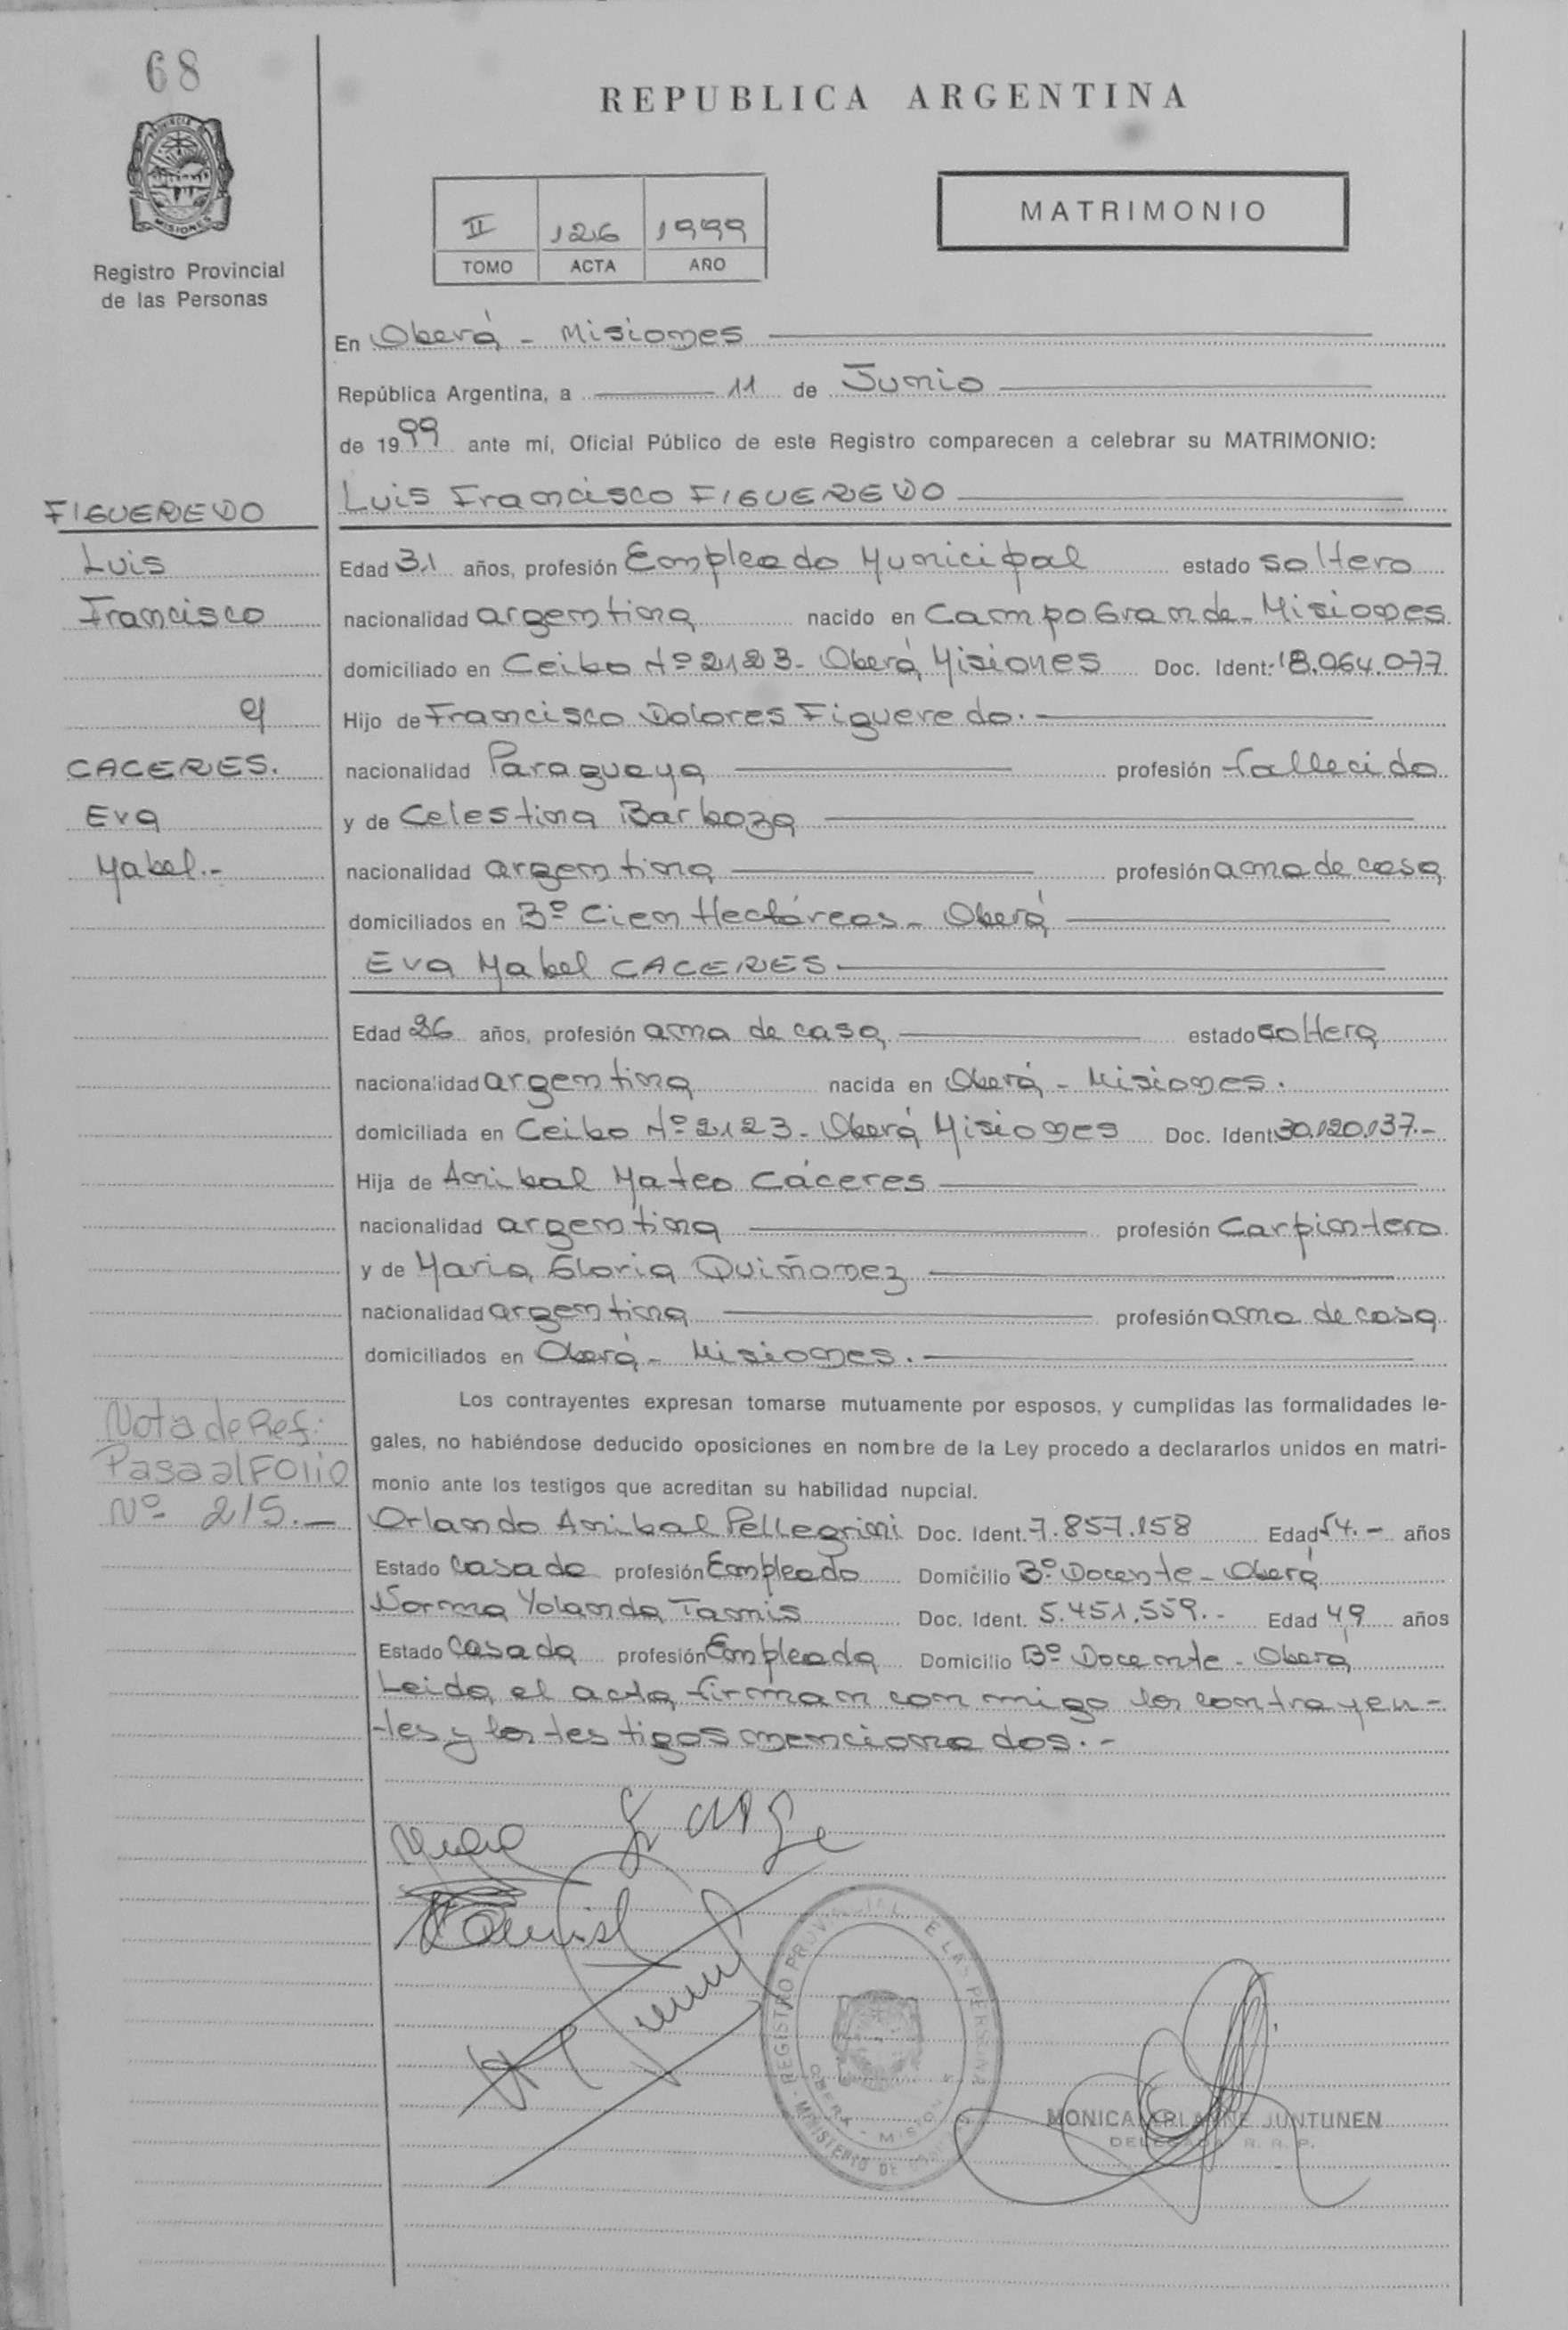 68
REPUBLICA ARGENTINA
PROVINCIA
MISIONES
Registro Provincial
de las Personas
II 126 1999
TOMO ACTA AÑO
MATRIMONIO
En Oberá - Misiones
República Argentina, a 11 de Junio
de 1999 ante mí, Oficial Público de este Registro comparecen a celebrar su MATRIMONIO:
Luis Francisco FIGUEREDO
FIGUEREDO
Luis
Francisco
y
CACERES.
Eva
Mabel.-
Edad 31 años, profesión Empleado Municipal estado soltero
nacionalidad argentina nacido en Campo Grande - Misiones
domiciliado en Ceibo Nº 2123 - Oberá Misiones Doc. Ident: 18.064.077
Hijo de Francisco Dolores Figueredo.
nacionalidad Paraguaya profesión fallecido
y de Celestina Barboza
nacionalidad argentina profesión ama de casa
domiciliados en Bº Cien Hectáreas - Oberá
Eva Mabel CACERES
Edad 26 años, profesión ama de casa estado soltera
nacionalidad argentina nacida en Oberá - Misiones.
domiciliada en Ceibo Nº 2123 - Oberá Misiones Doc. Ident 30.120.137.-
Hija de Anibal Mateo Cáceres
nacionalidad argentina profesión Carpintero
y de Maria Gloria Quiñonez
nacionalidad argentina profesión ama de casa
domiciliados en Oberá - Misiones.
Los contrayentes expresan tomarse mutuamente por esposos, y cumplidas las formalidades le-
gales, no habiéndose deducido oposiciones en nombre de la Ley procedo a declararlos unidos en matri-
monio ante los testigos que acreditan su habilidad nupcial.
Nota de Ref:
Pasa al Folio
Nº 215.-
Orlando Anibal Pellegrini Doc. Ident. 7.857.158 Edad 54.- años
Estado casado profesión Empleado Domicilio Bº Docente - Oberá
Norma Yolanda Tamis Doc. Ident. 5.451.559.- Edad 49 años
Estado casada profesión Empleada Domicilio Bº Docente - Oberá
Leida el acta, firman con migo los contrayen-
tes y los testigos mencionados.-
REGISTRO PROVINCIAL DE LAS PERSONAS
OBERÁ - MISIONES
MINISTERIO DE
MONICA JUNTUNEN
DELEGADA R. R. P.